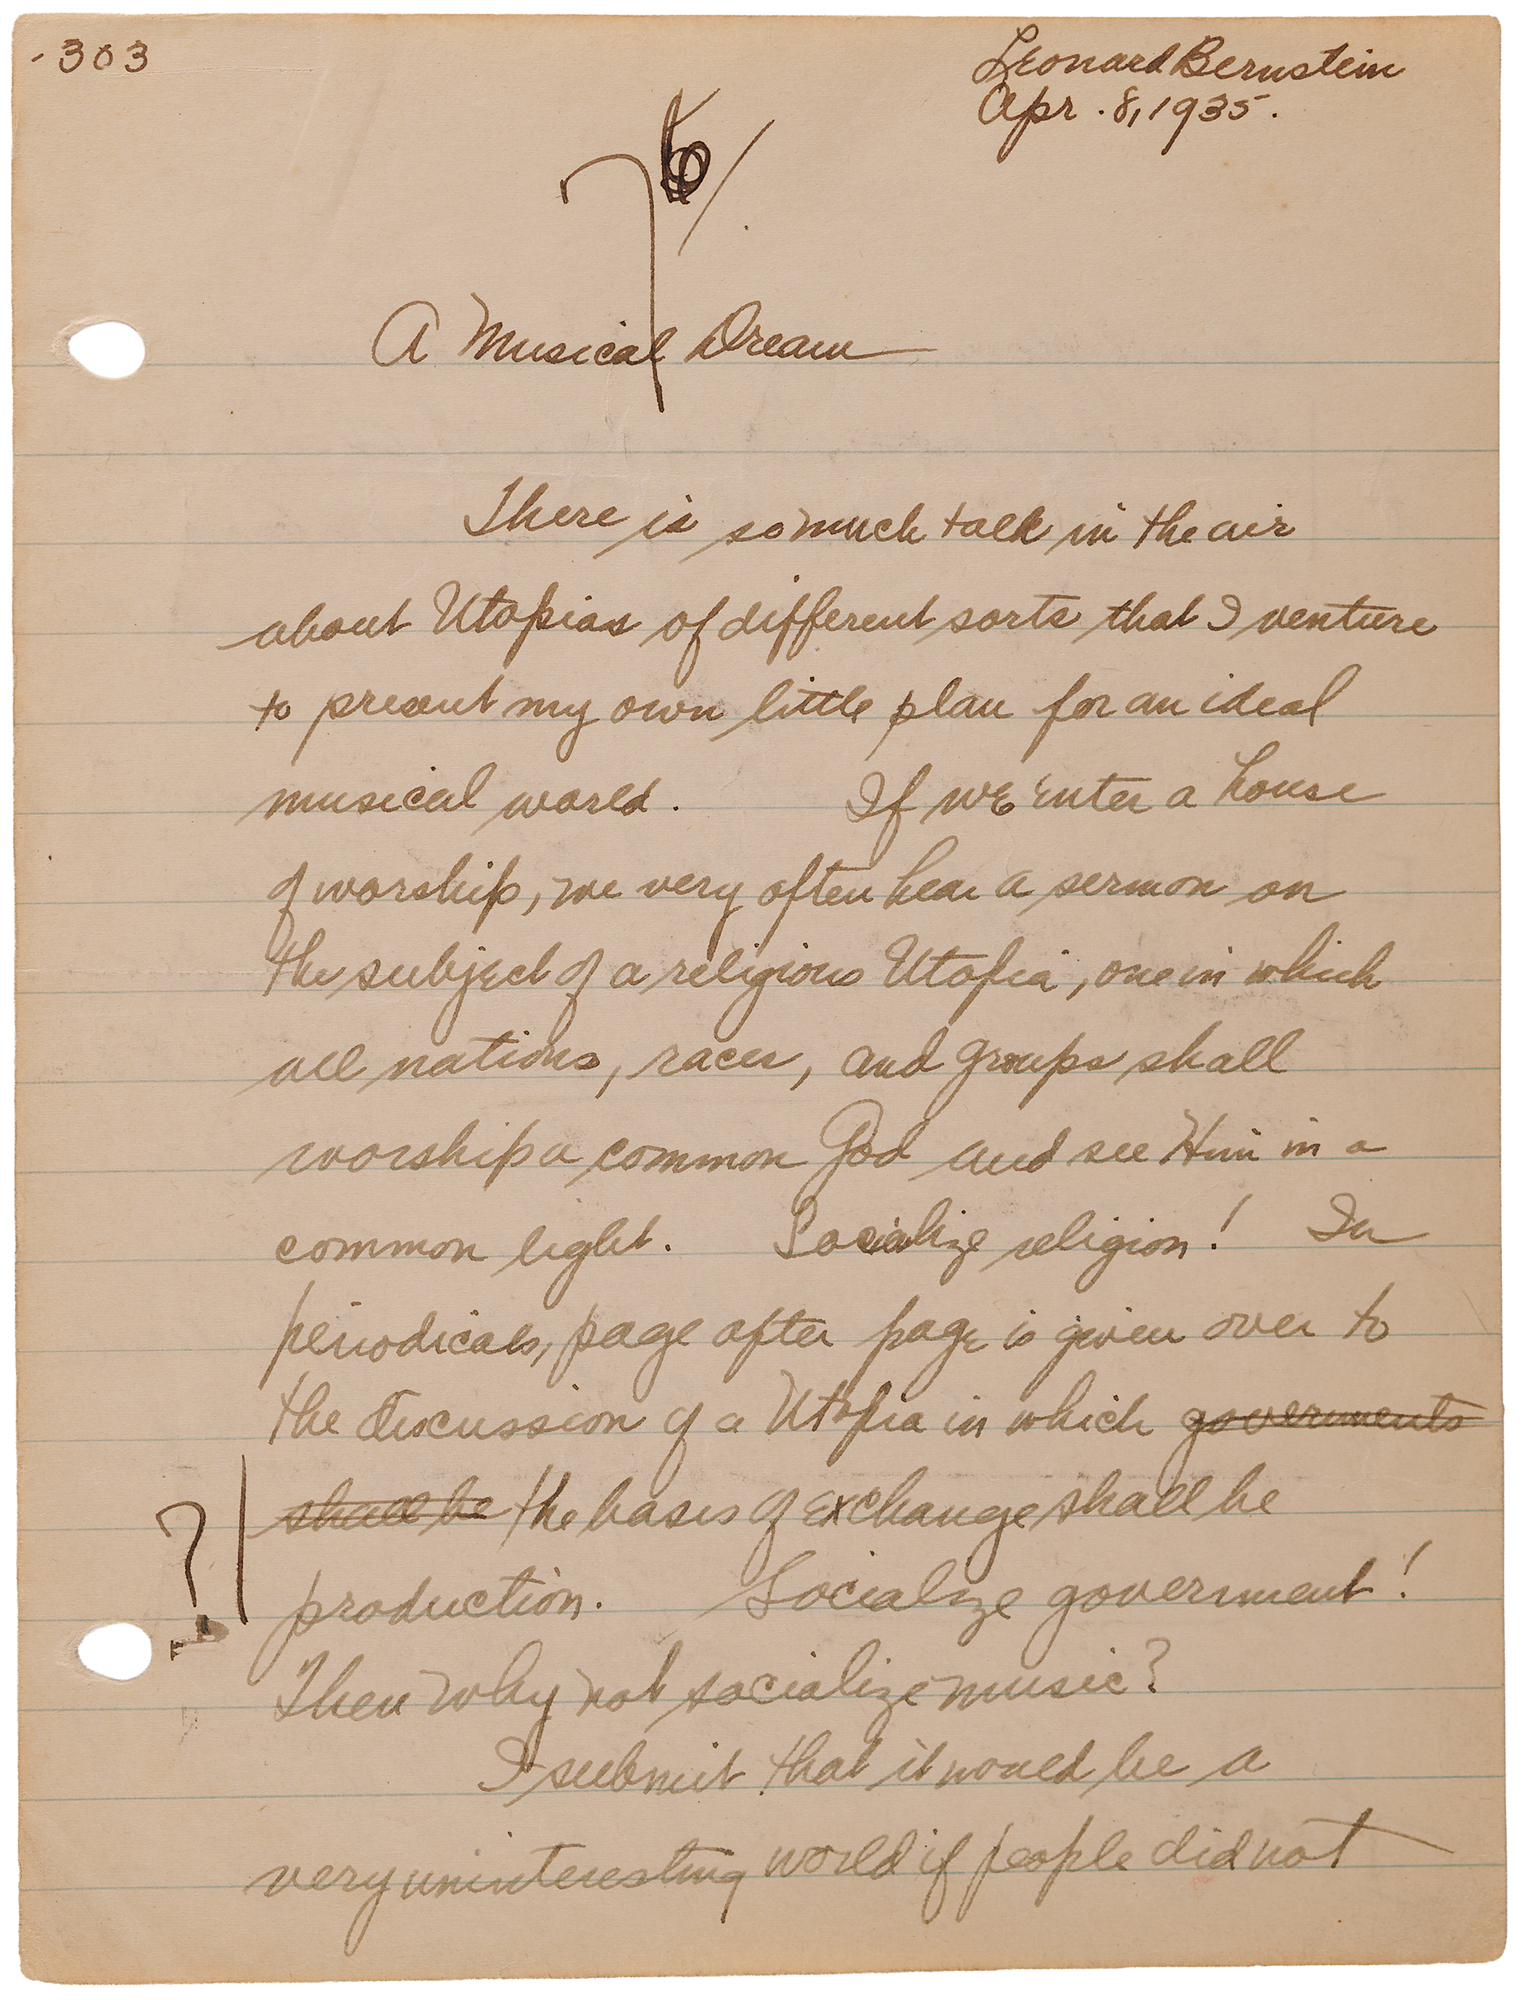 -303
Leonard Bernstein
Apr. 8, 1935.
A Musical Dream
There is so much talk in the air
about Utopias of different sorts that I venture
to present my own little plan for an ideal
musical world. If we enter a house
of worship, we very often hear a sermon on
the subject of a religious Utopia, one in which
all nations, races, and groups shall
worship a common God and see Him in a
common light. Socialize religion! In
periodicals, page after page is given over to
the discussion of a Utopia in which governments
shall be the basis of exchange shall be
production. Socialize government!
Then why not socialize music?
I submit that it would be a
very uninteresting world if people did not
?